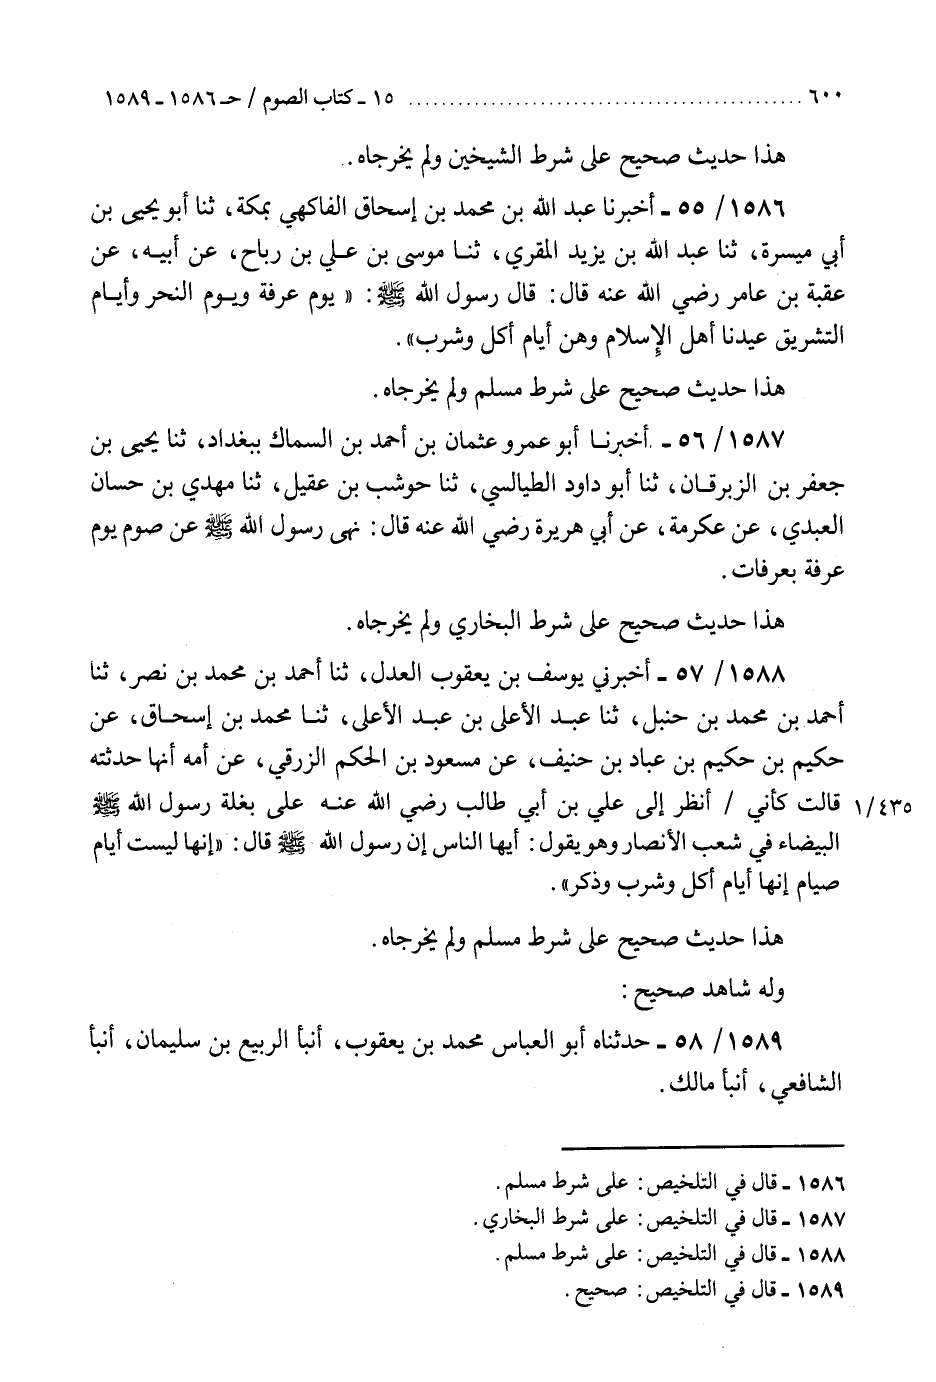 ٦٠٠ ................................................ ١٥ ـ كتاب الصوم / حـ ١٥٨٦ ـ ١٥٨٩
هذا حديث صحيح على شرط الشيخين ولم يخرجاه.
١٥٨٦/ ٥٥ ـ أخبرنا عبد الله بن محمد بن إسحاق الفاكهي بمكة، ثنا أبو يحيى بن
أبي ميسرة، ثنا عبد الله بن يزيد المقري، ثنا موسى بن علي بن رباح، عن أبيه، عن
عقبة بن عامر رضي الله عنه قال: قال رسول الله ﷺ: « يوم عرفة ويوم النحر وأيام
التشريق عيدنا أهل الإسلام وهن أيام أكل وشرب».
هذا حديث صحيح على شرط مسلم ولم يخرجاه.
١٥٨٧/ ٥٦ ـ أخبرنا أبو عمرو عثمان بن أحمد بن السماك ببغداد، ثنا يحيى بن
جعفر بن الزبرقان، ثنا أبو داود الطيالسي، ثنا حوشب بن عقيل، ثنا مهدي بن حسان
العبدي، عن عكرمة، عن أبي هريرة رضي الله عنه قال: نهى رسول الله ﷺ عن صوم يوم
عرفة بعرفات.
هذا حديث صحيح على شرط البخاري ولم يخرجاه.
١٥٨٨/ ٥٧ ـ أخبرني يوسف بن يعقوب العدل، ثنا أحمد بن محمد بن نصر، ثنا
أحمد بن محمد بن حنبل، ثنا عبد الأعلى بن عبد الأعلى، ثنا محمد بن إسحاق، عن
حكيم بن حكيم بن عباد بن حنيف، عن مسعود بن الحكم الزرقي، عن أمه أنها حدثته
١/٤٣٥ قالت كأني / أنظر إلى علي بن أبي طالب رضي الله عنه على بغلة رسول الله ﷺ
البيضاء في شعب الأنصار وهو يقول: أيها الناس إن رسول الله ﷺ قال: «إنها ليست أيام
صيام إنها أيام أكل وشرب وذكر».
هذا حديث صحيح على شرط مسلم ولم يخرجاه.
وله شاهد صحيح:
١٥٨٩/ ٥٨ ـ حدثناه أبو العباس محمد بن يعقوب، أنبأ الربيع بن سليمان، أنبأ
الشافعي، أنبأ مالك.
١٥٨٦ ـ قال في التلخيص: على شرط مسلم.
١٥٨٧ ـ قال في التلخيص: على شرط البخاري.
١٥٨٨ ـ قال في التلخيص: على شرط مسلم.
١٥٨٩ ـ قال في التلخيص: صحيح.